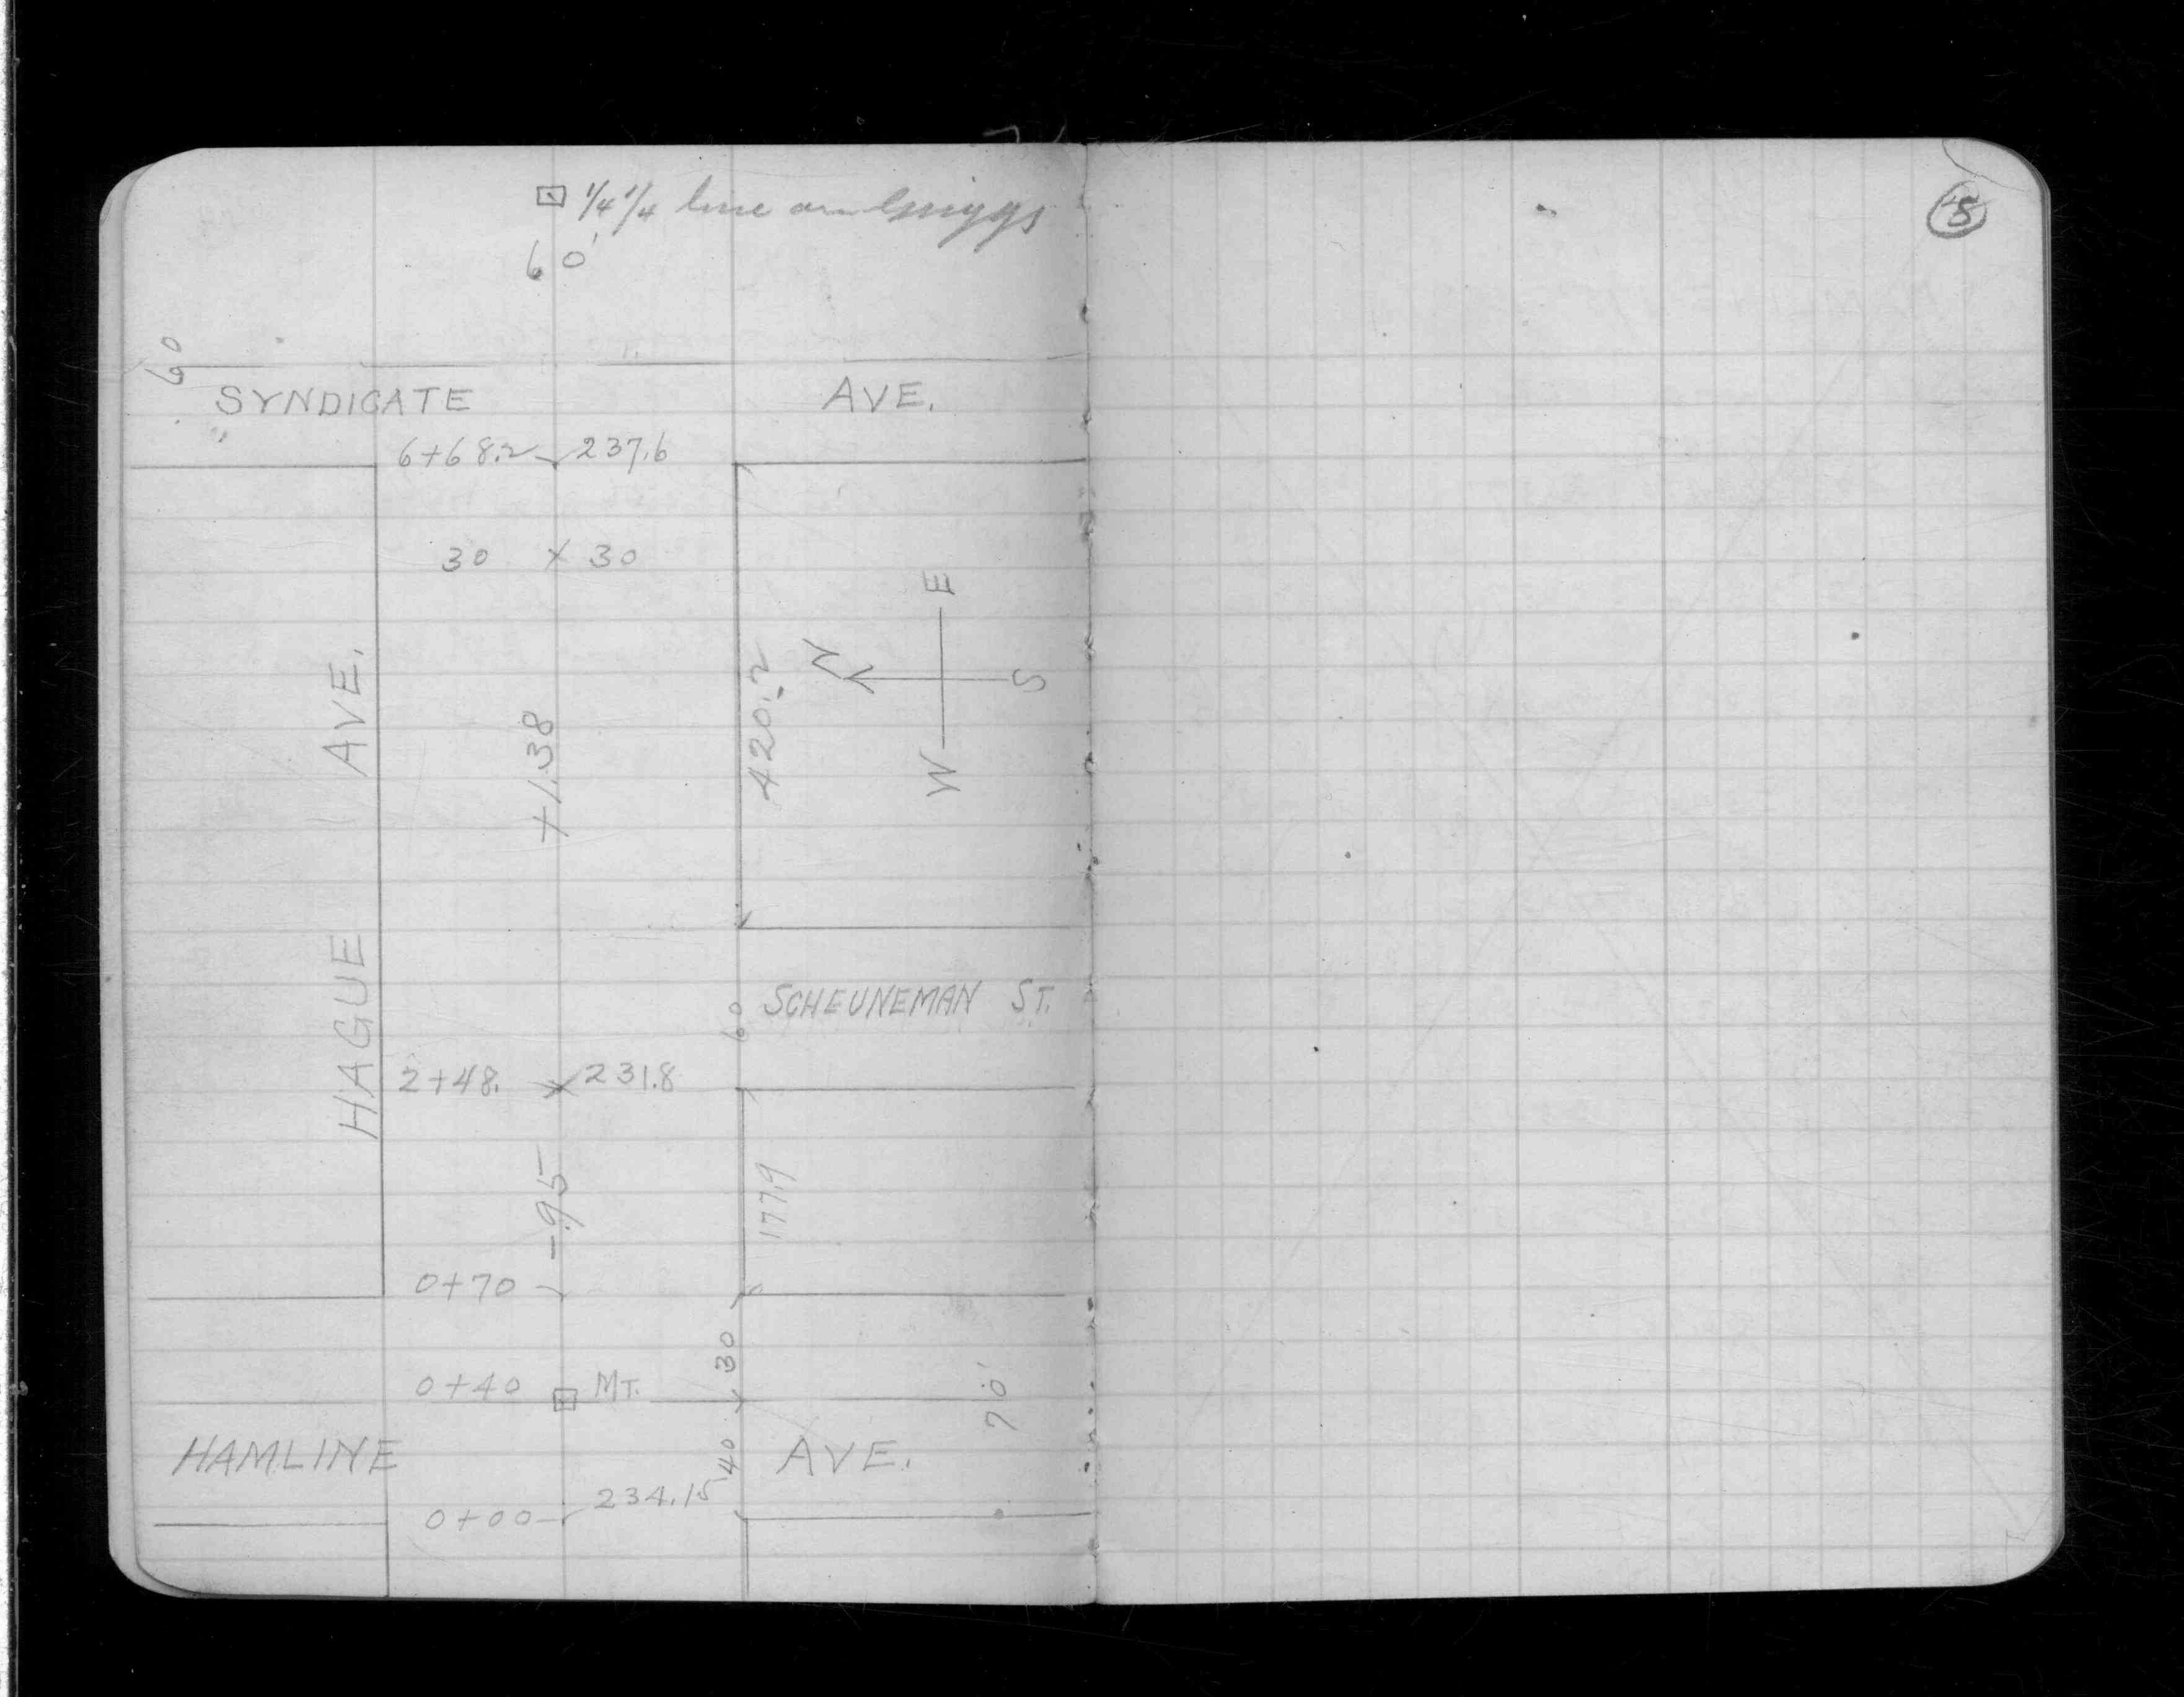 1/4 1/4 line on Griggs
60'
5
60
SYNDICATE AVE.
6+68.2 237.6
30 x 30
E
N
S
W
HAGUE AVE.
+1.38
420.2
60
SCHEUNEMAN ST.
2+48. x 231.8
-.95
177.9
0+70
30
0+40 MT.
70'
HAMLINE AVE.
40
0+00 234.15